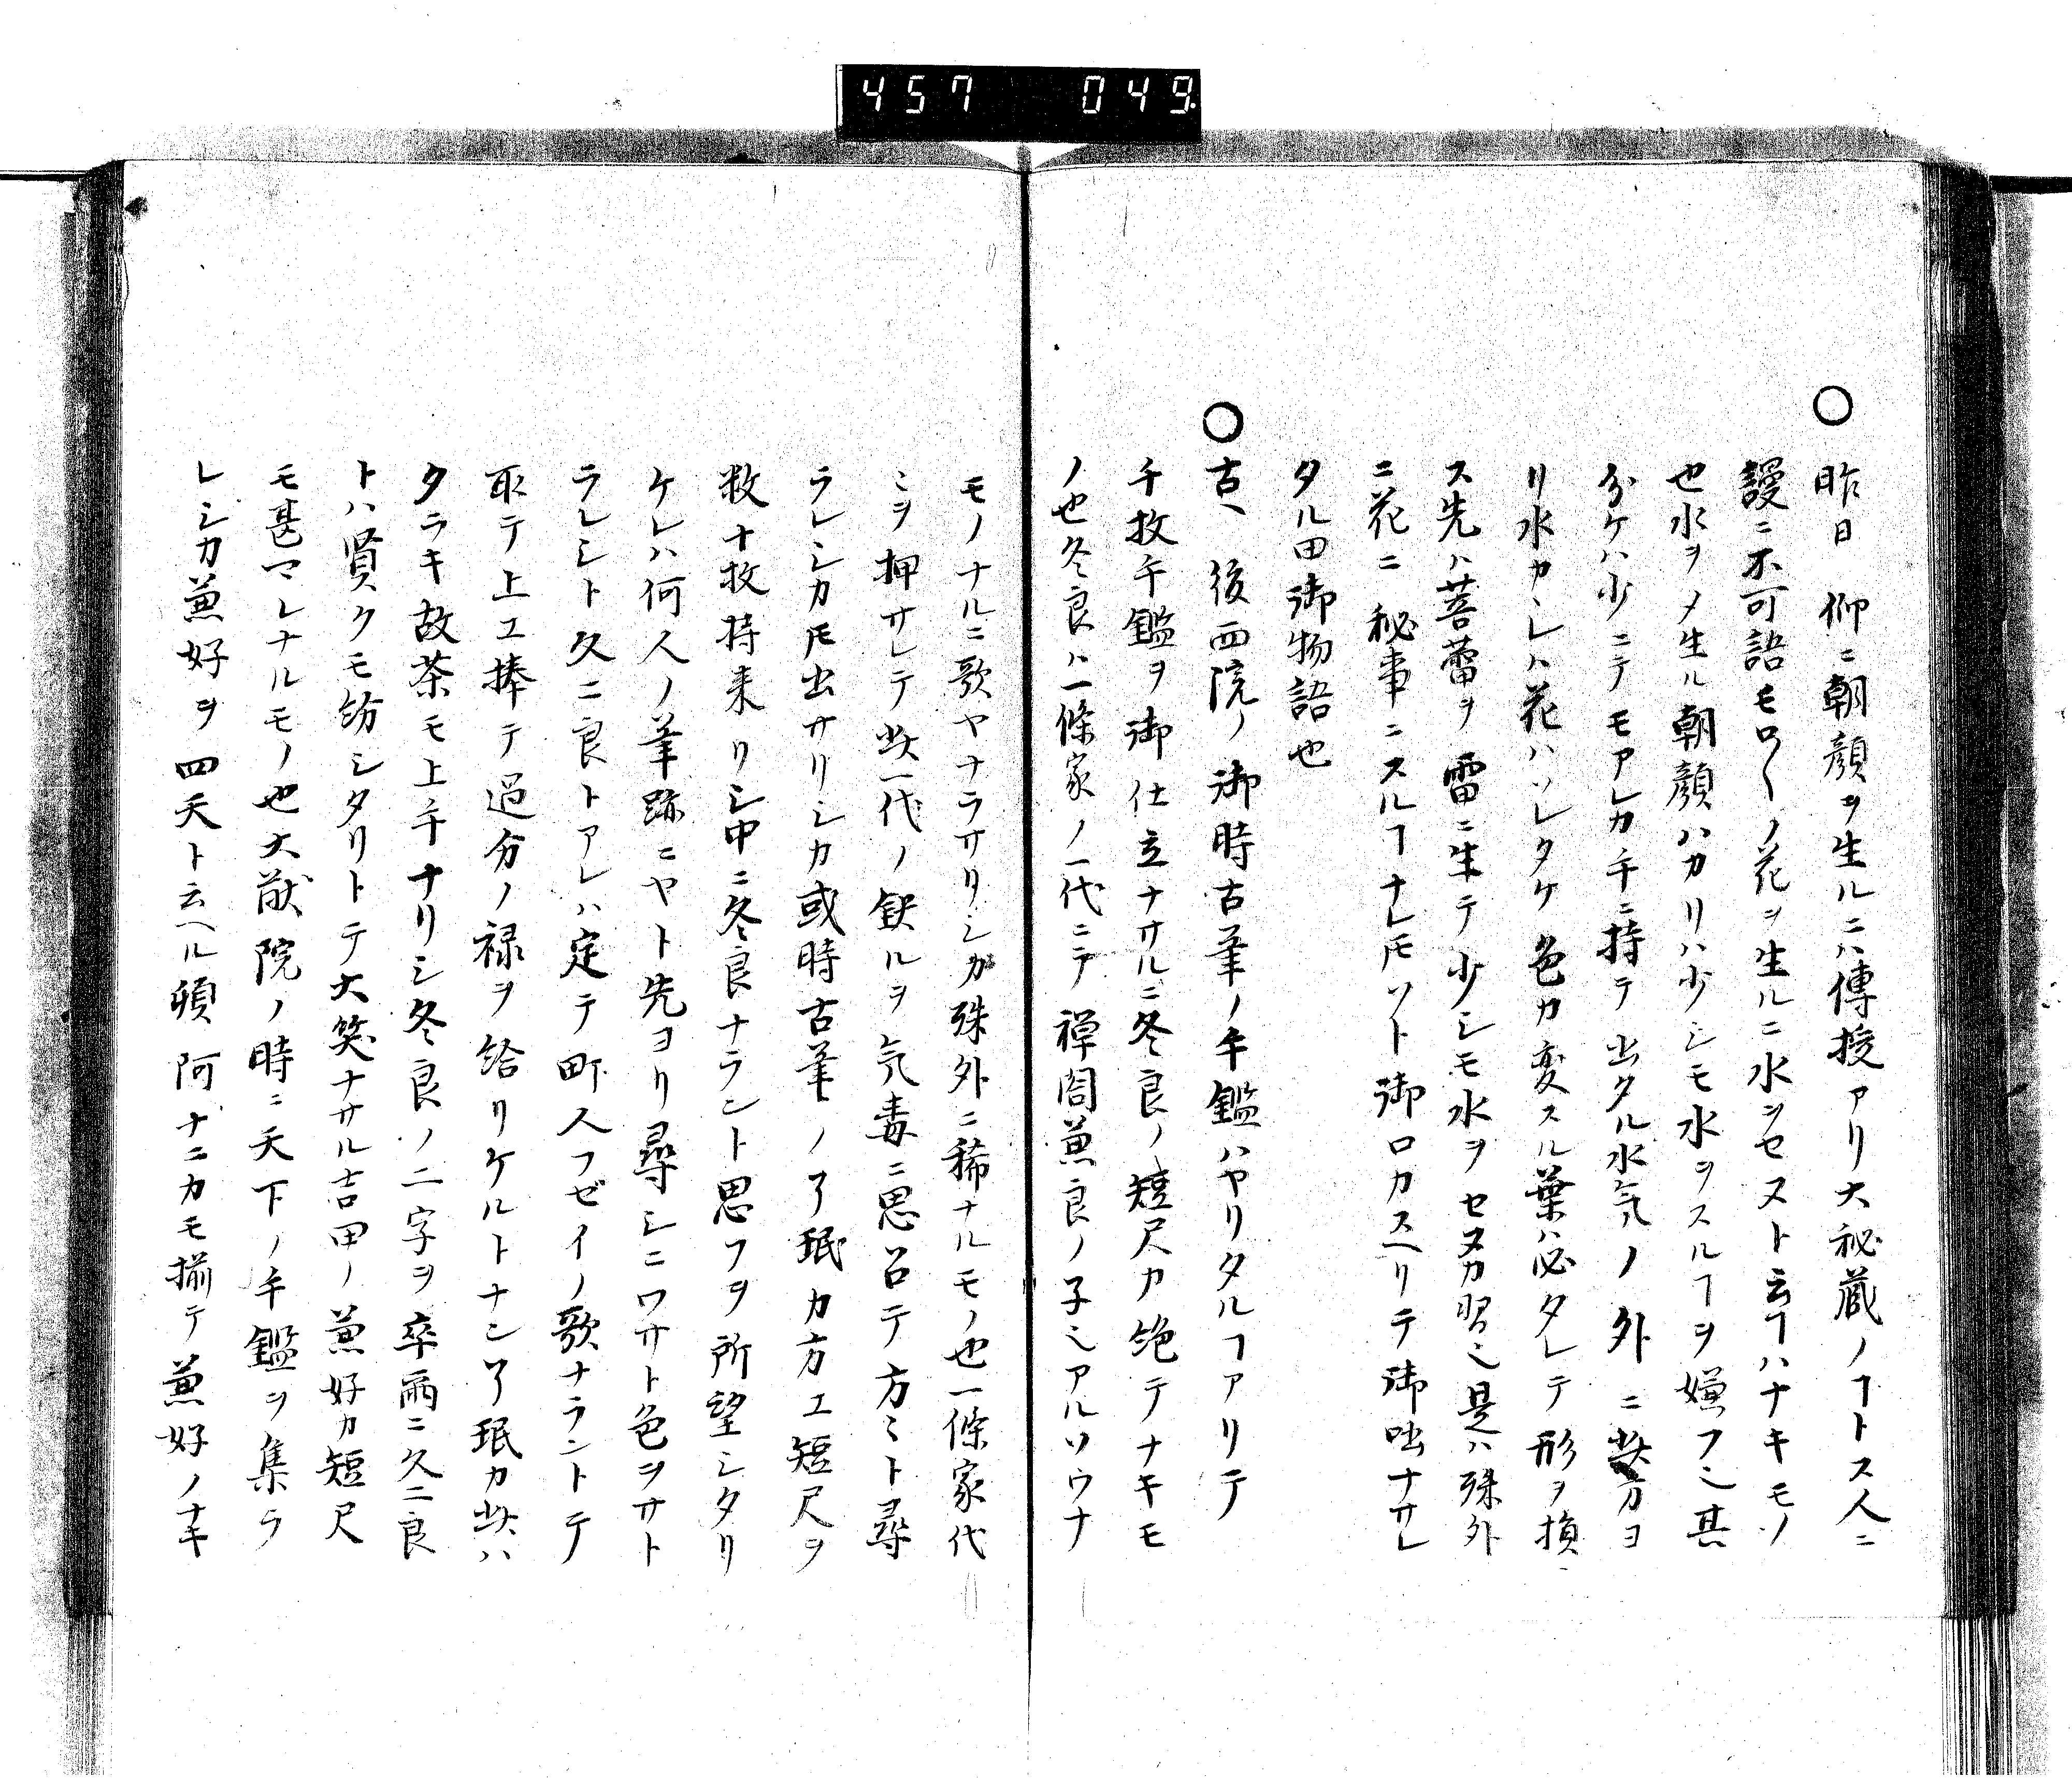 457 049
○昨日 仰ニ朝顔ヲ生ルニハ傳授アリ大秘蔵ノヿトス人ニ
謾ニ不可語モロ〱ノ花ヲ生ルニ水ヲセヌト云ヿハナキモノ
也水ヲメ生ル朝顔ハカリハ少シモ水ヲスルヿヲ嫌フ也其
分ケハ少ニテモアレカ手ニ持テ出タル水気ノ外ニ此方ヨ
リ水カヽレハ花ハソレタケ色カ変スル葉ハ必タレテ形ヲ損
ス先ハ菩蕾ヲ雷ニ生テ少シモ水ヲセヌカ習也是ハ殊外
ニ花ニ秘事ニスルヿナレ𪜈ソト御口カスヘリテ御咄ナサレ
タル由御物語也
○古ヘ 後西院ノ御時古筆ノ手鑑ハヤリタルヿアリテ
千枚手鑑ヲ御仕立ナサルニ冬良ノ短尺カ絶テナキモ
ノ也冬良ハ一條家ノ一代ニテ禅閤兼良ノ子也アルソウナ
モノナルニ歌ヤナラサリシカ殊外ニ稀ナルモノ也一條家代
ミヲ押サレテ此一代ノ鈌ルヲ気毒ニ思召テ方ミト尋
ラレシカ𪜈出サリシカ或時古筆ノ了珉カ方エ短尺ヲ
数十枚持来リシ中ニ冬良ナラント思フヲ所望シタリ
ケレハ何人ノ筆跡ニヤト先ヨリ尋シニワサト色ヲサト
ラレシト久ニ良トアレハ定テ町人フゼイノ歌ナラントテ
取テ上エ捧テ過分ノ禄ヲ給リケルトナン了珉カ此ハ
タラキ故茶モ上手ナリシ冬良ノ二字ヲ卒爾ニ久ニ良
トハ賢クモ紛シタリトテ大笑ナサル吉田ノ兼好カ短尺
モ甚マレナルモノ也大猷院ノ時ニ天下ノ手鑑ヲ集ラ
レシカ兼好ヲ四天ト云ヘル頓阿ナニカモ揃テ兼好ノナキ